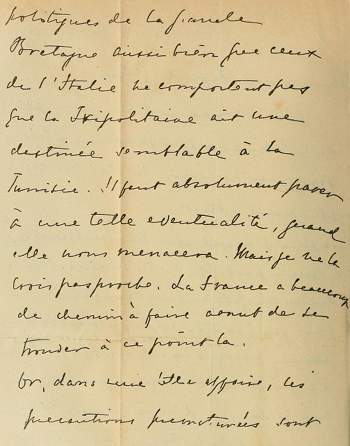 politiques de la Grande
Bretagne aussi bien que ceux
de l'Italie ne comportent pas
que la Tripolitaine ait une
destinée semblable à la
Tunisie. Il faut absolument parer
à une telle eventualité, quand
elle nous menacera. Mais je ne la
crois pas proche. La France a beaucoup
de chemin à faire avant de se
à ce point là.
Or, dans une affaire, les
precautions sont